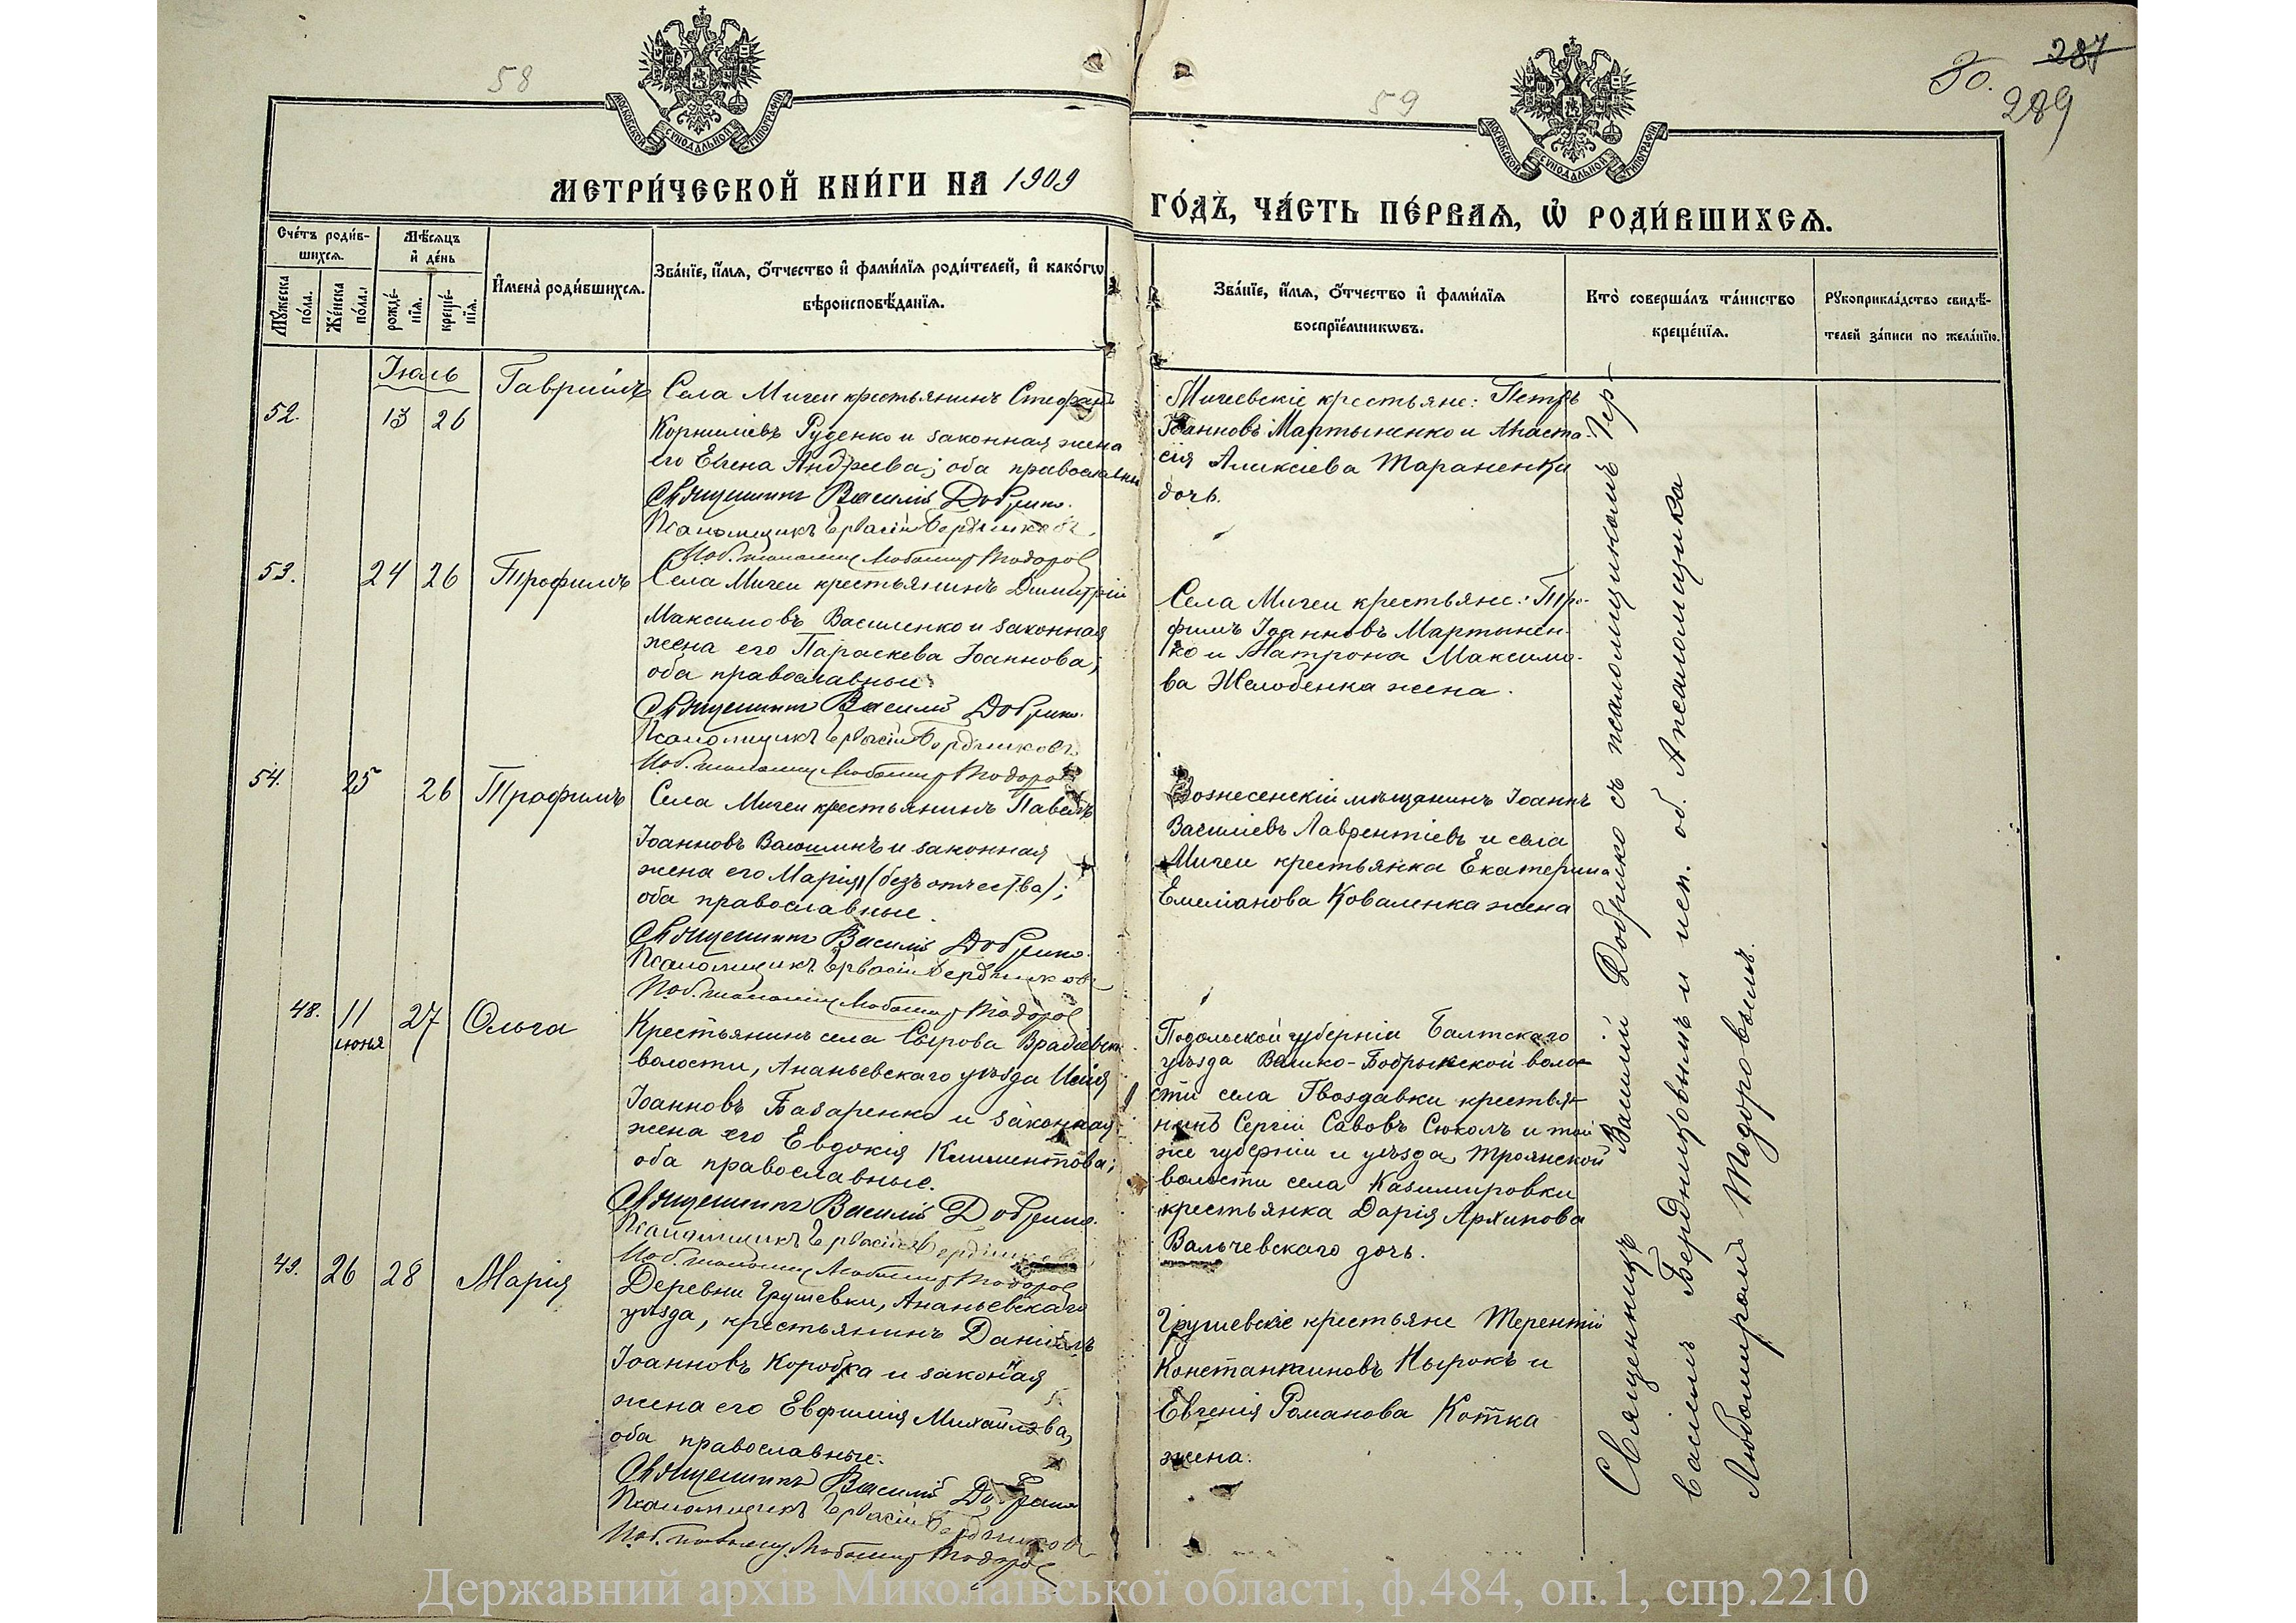 58
59
30.
287
289
МОСКОВСКОЙ СѴНОДАЛЬНОЙ ТИПОГРАФІИ
МОСКОВСКОЙ СѴНОДАЛЬНОЙ ТИПОГРАФІИ
МЕТРИ́ЧЕСКОЙ КНИ́ГИ НА 1909
ГО́ДЪ, ЧА́СТЬ ПЕ́РВАѦ, Ѡ҆ РОДИ́ВШИХСѦ.
Сче́тъ роди́в-
шихсѧ.
Мꙋ́жеска по́ла.
Же́нска по́ла.
Мѣ́сѧцъ
и҆ де́нь
рожде́-
нїѧ.
креще́-
нїѧ.
И҆мена̀ роди́вшихсѧ.
Зва́нїе, и҆́мѧ, ѻ҆́тчество и҆ фами́лїѧ роди́телей, и҆ како́гѡ
вѣроисповѣ́данїѧ.
Зва́нїе, и҆́мѧ, ѻ҆́тчество и҆ фами́лїѧ
воспрїе́мникѡвъ.
Кто̀ соверша́лъ та́инство
креще́нїѧ.
Рꙋкоприкла́дство свидѣ́-
телей за́писи по жела́нїю.
Іюль
52.
13 26
Гавріилъ
Села Мигеи крестьянинъ Стефанъ
Корниліевъ Руденко и законная жена
его Елена Андреева; оба православные
Священникъ Василій Добрико.
Псаломщикъ Гервасій Бердниковъ.
Любомиръ Тодоровъ
Мигеевскіе крестьяне: Петръ
Іоанновъ Мартыненко и Анаста-
сія Алексіева Тараненки
дочь.
53.
24 26
Трофимъ
Села Мигеи крестьянинъ Димитрій
Максимовъ Василенко и законная
жена его Параскева Іоаннова;
оба православные.
Священникъ Василій Добрико.
Псаломщикъ Гервасій Бердниковъ
Любомиръ Тодоровъ
Села Мигеи крестьяне: Тро-
фимъ Іоанновъ Мартынен-
ко и Матрона Максимо-
ва Желобенка жена.
54.
25 26
Трофимъ
Села Мигеи крестьянинъ Павелъ
Іоанновъ и законная
жена его Марія (безъ отчества);
оба православные.
Священникъ Василій Добрико.
Псаломщикъ Гервасій Бердниковъ
Любомиръ Тодоровъ
Вознесенскій мѣщанинъ Іоаннъ
Василіевъ Лаврентіевъ и села
Мигеи крестьянка Екатерина
Емеліанова Коваленка жена
48.
11 27
июня
Ольга
Крестьянинъ села Сырова Врадіевск.
волости, Ананьевскаго уѣзда
Іоанновъ Базаренко и законная
жена его Евдокія Климентова;
оба православные.
Священникъ Василій Добрико.
Псаломщикъ Гервасій Бердниковъ
Любомиръ Тодоровъ
Подольской губерніи Балтскаго
уѣзда Велико-Бобрынской воло-
сти села Гвоздавки крестья-
нинъ Сергій Савовъ Сюколъ и той
же губерніи и уѣзда, Троянской
волости села Казимировки
крестьянка Дарія Архипова
Вальчевскаго дочь.
49.
26 28
Марія
Деревни Грушевки, Ананьевскаго
уѣзда, крестьянинъ Даніилъ
Іоанновъ Коробка и законная
жена его Евфимія Михайлова,
оба православные.
Священникъ Василій Добрико
Псаломщикъ Гервасій Бердниковъ
Любомиръ Тодоровъ
Грушевскіе крестьяне Терентій
Константиновъ Нырокъ и
Евгенія Романова Котка
жена.
Священникъ Василій Добрико съ псаломщикомъ Гер-
васіемъ Бердниковымъ и исп. об. псаломщика
Любомиромъ Тодоровымъ.
Державний архів Миколаївської області, ф.484, оп.1, спр.2210